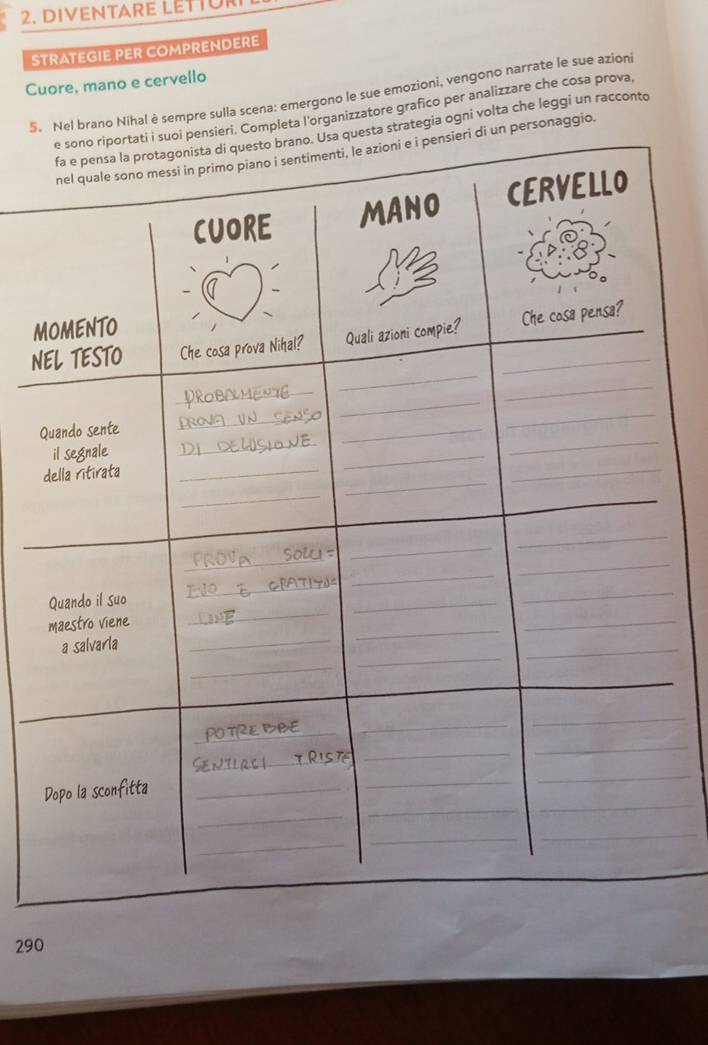 2. DIVENTARE
STRATEGIE PER COMPRENDERE
Cuore, mano e cervello
5. Nel brano Nihal è sempre sulla scena: emergono le sue emozioni, vengono narrate le sue azioni
e sono riportati i suoi pensieri. Completa l'organizzatore grafico per analizzare che cosa prova,
fa e pensa la protagonista di questo brano. Usa questa strategia ogni volta che leggi un racconto
nel quale sono messi in primo piano i sentimenti, le azioni e i pensieri di un personaggio.
CUORE
MANO
CERVELLO
MOMENTO
NEL TESTO
Che cosa prova Nihal?
Quali azioni compie?
Che cosa pensa?
Quando sente
il segnale
della ritirata
PROBALMENTE
PROVA UN SENSO
DI DELUSIONE
Quando il suo
maestro viene
a salvarla
PROVA SOLLI=
EVO E GRATITU=
Dopo la sconfitta
POTREBBE
SENTIRCI TRISTE
290